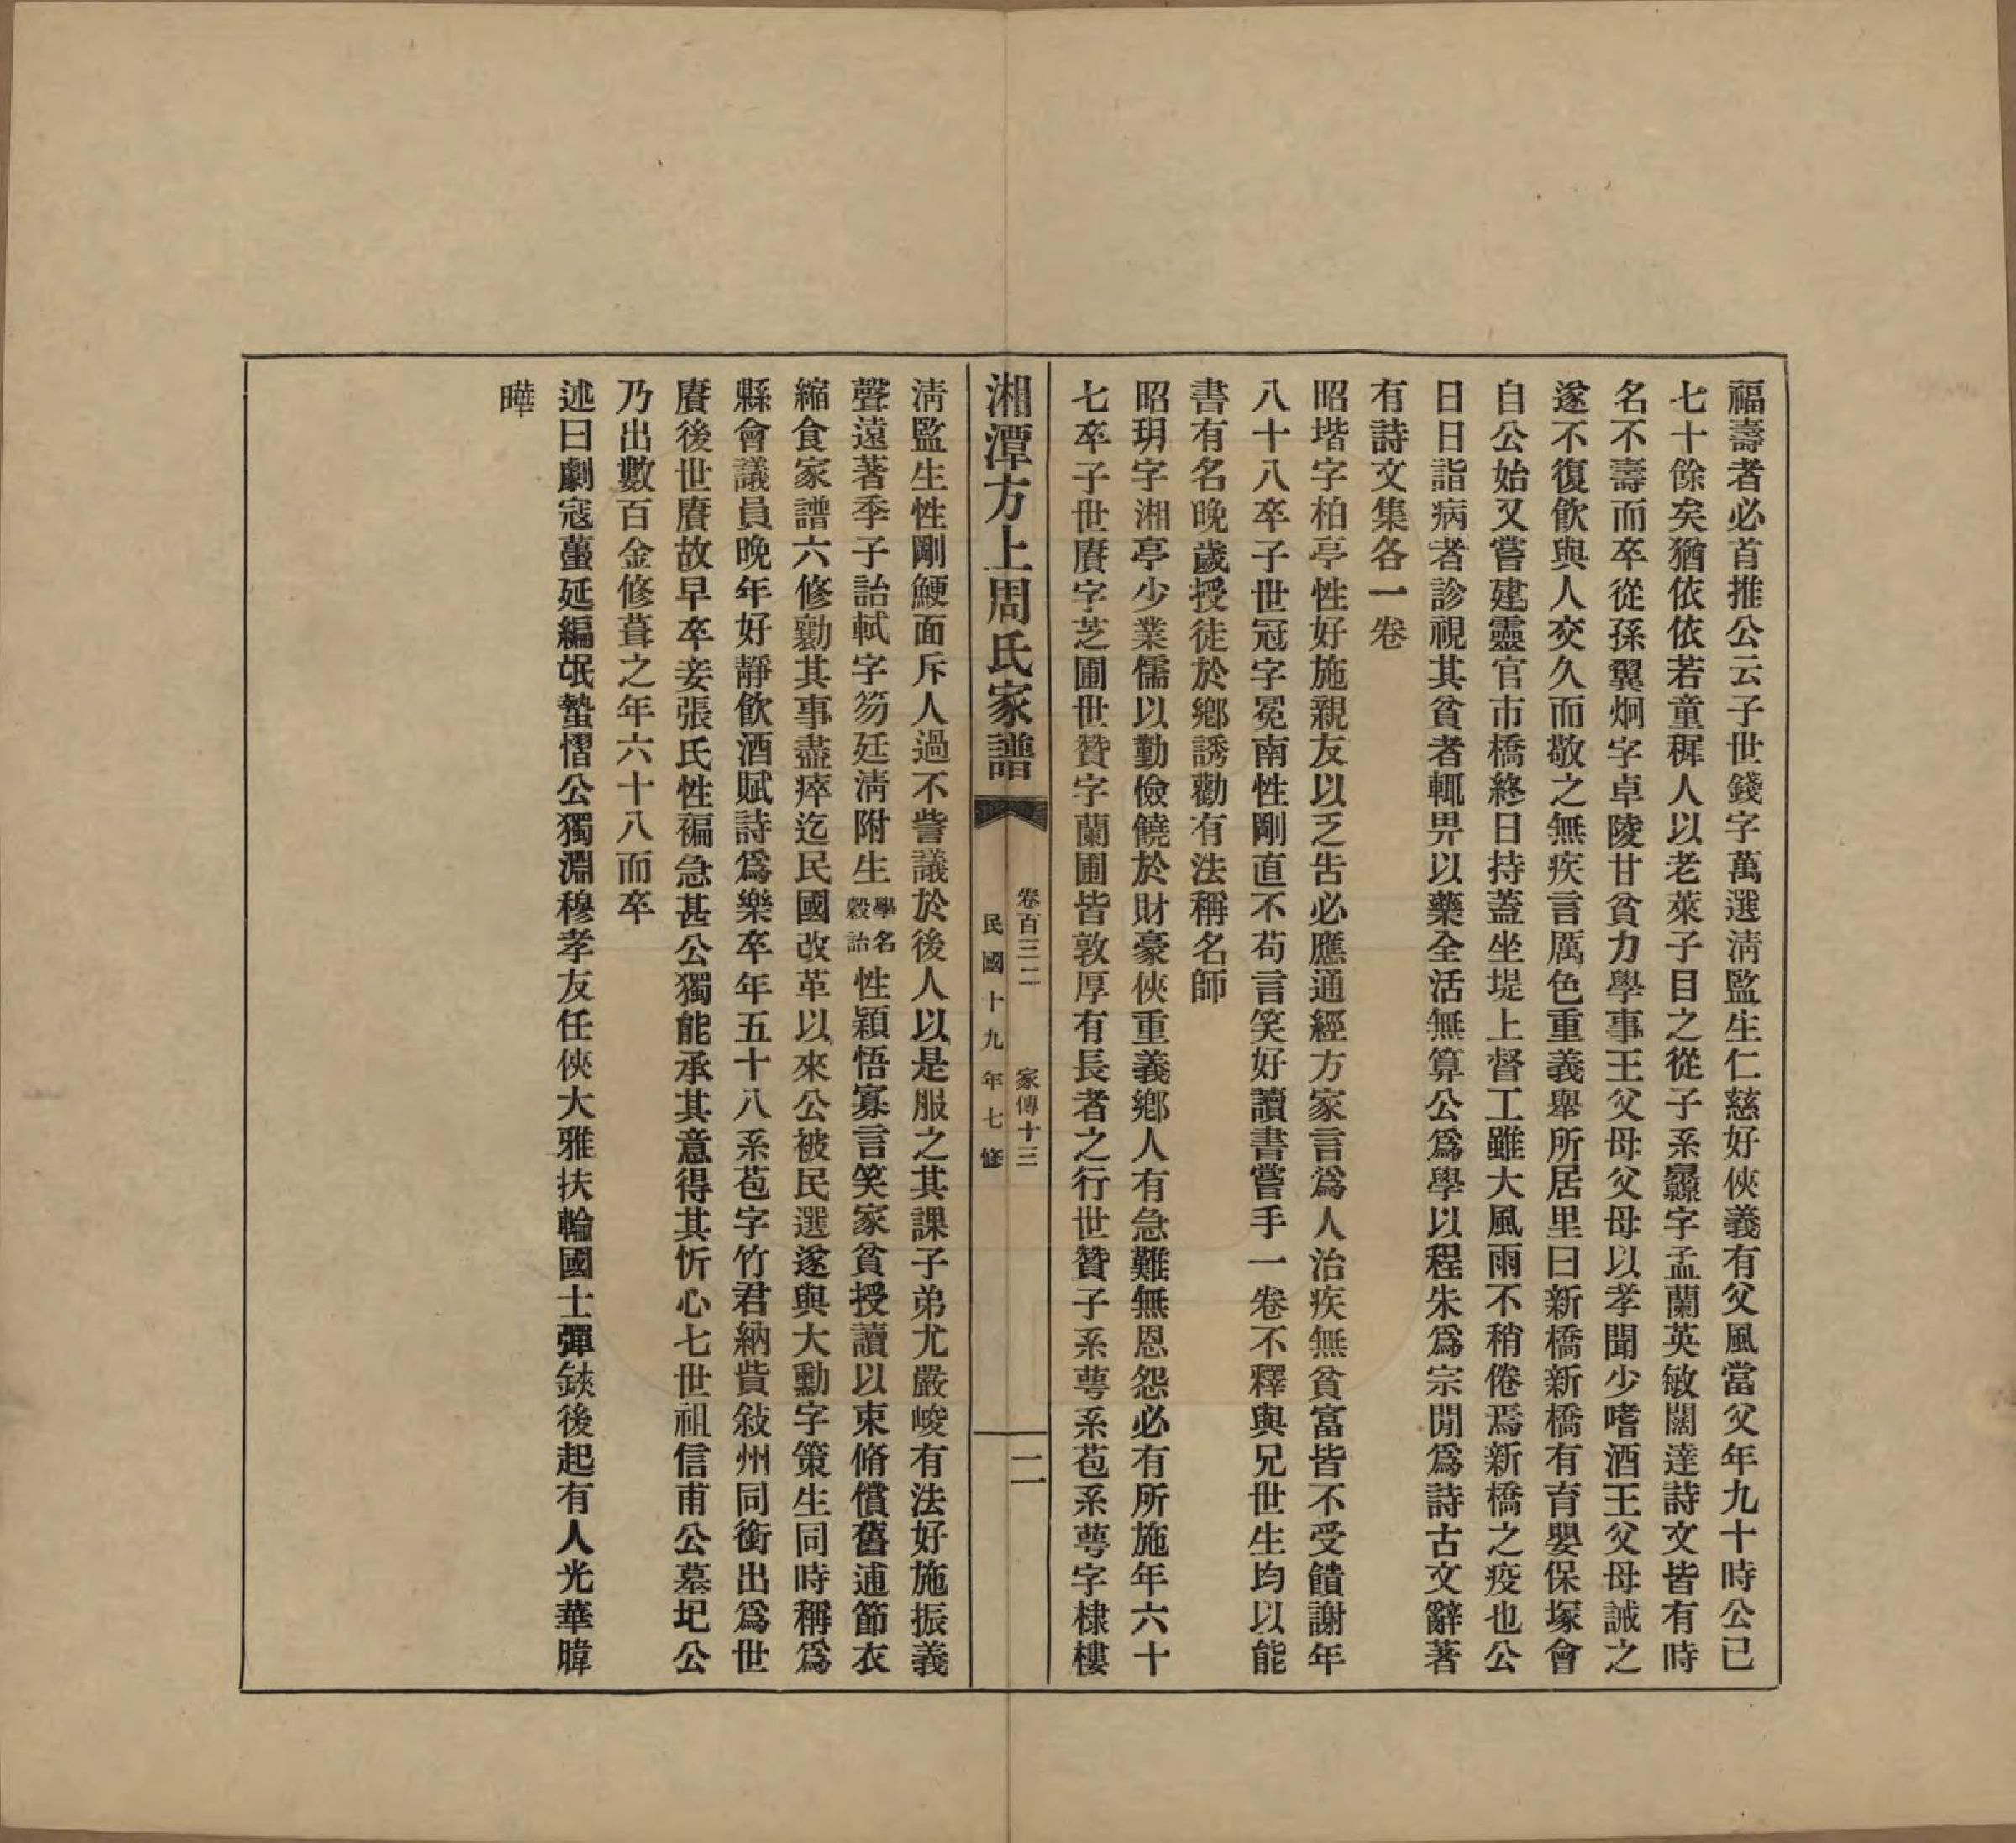 福壽者必首推公云子世錢字萬選淸監生仁慈好俠義有父風當父年九十時公已
七十餘矣猶依依若童穉人以老萊子目之從子系纍字孟蘭英敏闊達詩文皆有時
名不壽而卒從孫翼炯字卓陵甘貧力學事王父母父母以孝聞少嗜酒王父母誡之
遂不復飮與人交久而敬之無疾言厲色重義舉所居里曰新橋新橋有育嬰保塚會
自公始又嘗建靈官市橋終日持蓋坐堤上督工雖大風雨不稍倦焉新橋之疫也公
日日詣病者診視其貧者輒畀以藥全活無算公爲學以程朱爲宗閒爲詩古文辭著
有詩文集各一卷
昭堦字柏亭性好施親友以乏吿必應通經方家言爲人治疾無貧富皆不受饋謝年
八十八卒子世冠字冕南性剛直不苟言笑好讀書嘗手一卷不釋與兄世生均以能
書有名晚歲授徒於鄕誘勸有法稱名師
昭玥字湘亭少業儒以勤儉饒於財豪俠重義鄕人有急難無恩怨必有所施年六十
七卒子世賡字芝圃世贊字蘭圃皆敦厚有長者之行世贊子系萼系苞系萼字棣樓
湘潭方上周氏家譜
卷百三二 家傳十三
民國十九年七修
二
淸監生性剛鯁面斥人過不訾議於後人以是服之其課子弟尤嚴峻有法好施振義
聲遠著季子詒軾字笏廷淸附生學名穀詒性穎悟寡言笑家貧授讀以束脩償舊逋節衣
縮食家譜六修勷其事盡瘁迄民國改革以來公被民選遂與大勳字策生同時稱爲
縣會議員晚年好靜飮酒賦詩爲樂卒年五十八系苞字竹君納貲敍州同銜出爲世
賡後世賡故早卒妾張氏性褊急甚公獨能承其意得其忻心七世祖信甫公墓圮公
乃出數百金修葺之年六十八而卒
述曰劇寇蔓延編氓蟄慴公獨淵穆孝友任俠大雅扶輪國士彈鋏後起有人光華暐
曄